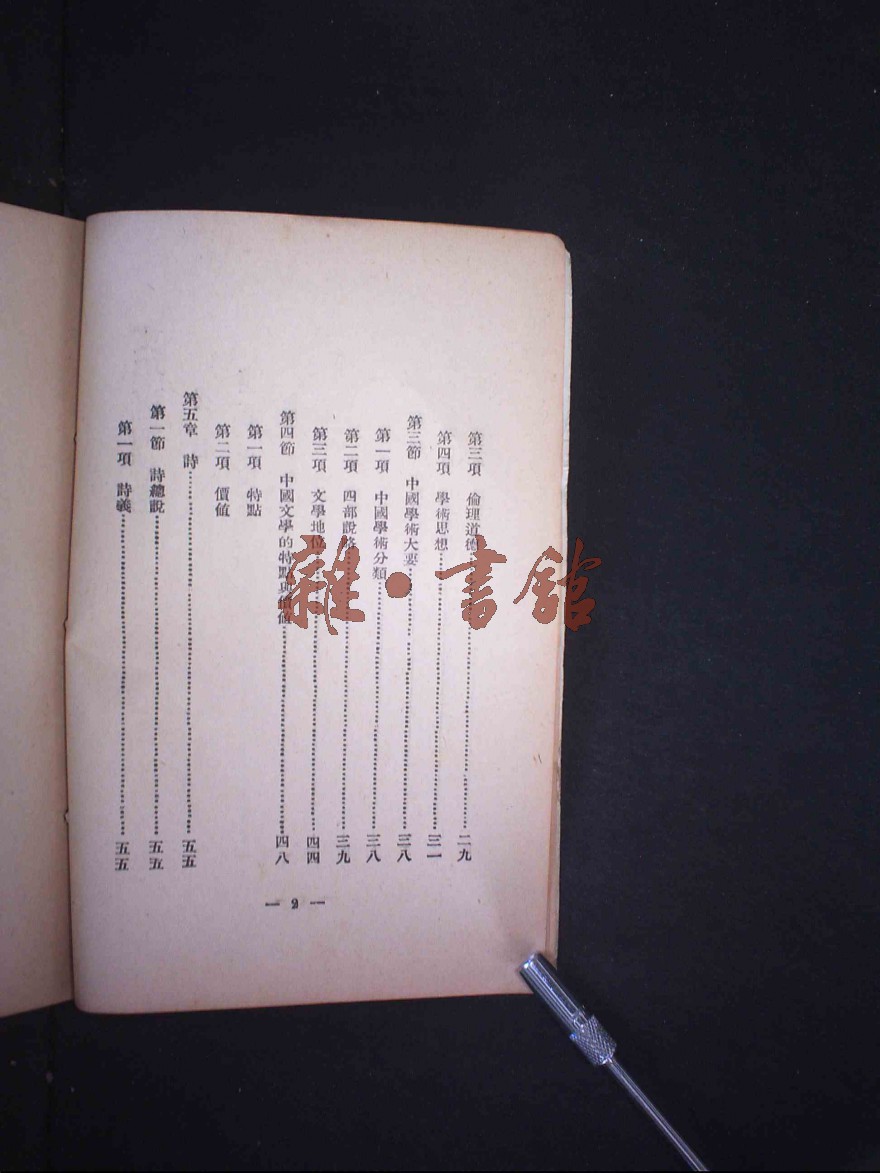 第三項 倫理道德……二九
第四項 學術思想……三一
第三節 中國學術大要……三八
第一項 中國學術分類……三八
第二項 四部說略……三九
第三項 文學地位……四四
第四節 中國文學的特點與價值……四八
第一項 特點
第二項 價值
第五章 詩……五五
第一節 詩總說……五五
第一項 詩義……五五
— 2 —
雜·書館